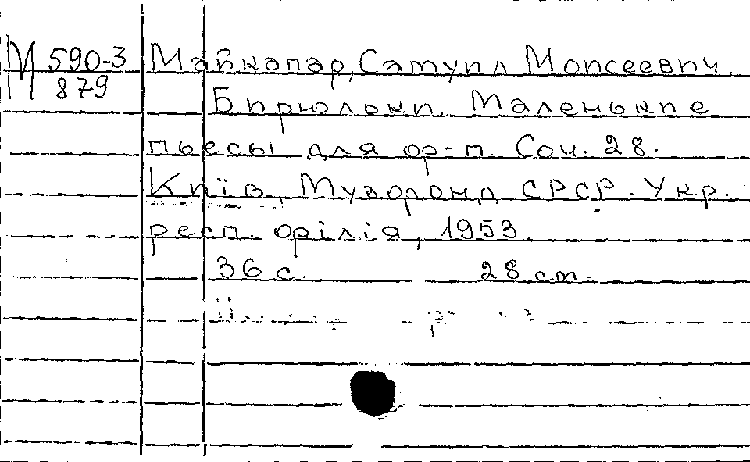 М 590-3 Майкапар, Самуил Моисеевич.
879
Бирюльки. Маленькие
пьесы для ф-п. Соч. 28.
Київ, Музфонд СРСР. Укр.
респ. філія, 1953.
36 с. 28 cm.